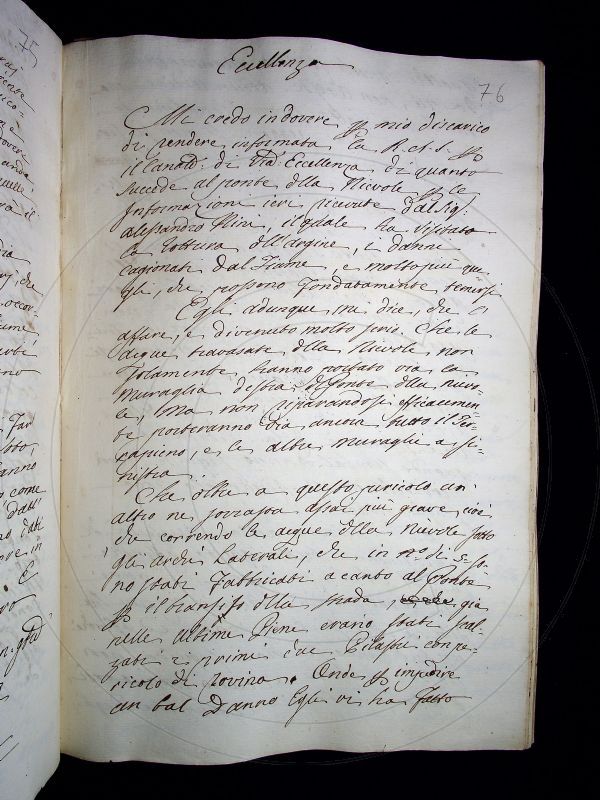 75
76
Eccellenza
Mi credo in dovere p mio discarico
di rendere informata la R.A.S. p
il Canale di Vra Eccellenza di quanto
succede al ponte della Nievole p le
Informazioni ieri ricevute dal Sig.
Alessandro Nini, il quale ha visitato
la rottura dell'argine, i danni
cagionati dal Fiume, e molto più que
gli, che possono fondatamente temersi
Egli adunque mi dice, che l'
affare, è divenuto molto serio. Che le
acque travasate della Nievole non
solamente hanno portato via la
muraglia destra del Ponte della Nievo-
le, ma non riparandosi efficacemen-
te porteranno via ancora tutto il Ter-
rapieno, e le altre muraglie a si-
nistra.
Che oltre a questo pericolo un
altro ne sovrasta assai più grave, cioè
che correndo le acque della Nievole sotto
gli archi laterali, che in no. di 5. so-
no stati fabbricati a canto al Ponte
p il transito della strada, già
nelle ultime Piene erano stati scal-
zati i primi due Pilastri con pe-
ricolo di rovina. Onde p impedire
un tal Danno Egli vi ha fatto